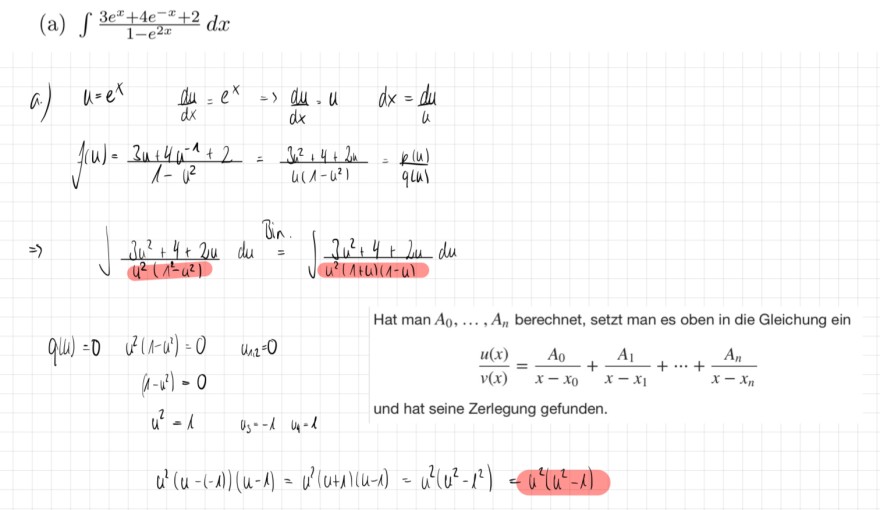 (a) ∫ (3e^x+4e^{-x}+2)/(1-e^{2x}) dx
a.) u=e^x du/dx = e^x => du/dx = u dx = du/u
f(u) = (3u+4u^{-1}+2)/(1-u^2) = (3u^2+4+2u)/(u(1-u^2)) = p(u)/q(u)
=> ∫ (3u^2+4+2u)/(u^2(1^2-u^2)) du Bin. = ∫ (3u^2+4+2u)/(u^2(1+u)(1-u)) du
Hat man A_0, …, A_n berechnet, setzt man es oben in die Gleichung ein
u(x)/v(x) = A_0/(x-x_0) + A_1/(x-x_1) + ⋯ + A_n/(x-x_n)
und hat seine Zerlegung gefunden.
q(u)=0 u^2(1-u^2)=0 u_{1,2}=0
(1-u^2)=0
u^2=1 u_3=-1 u_4=1
u^2(u-(-1))(u-1) = u^2(u+1)(u-1) = u^2(u^2-1^2) = u^2(u^2-1)